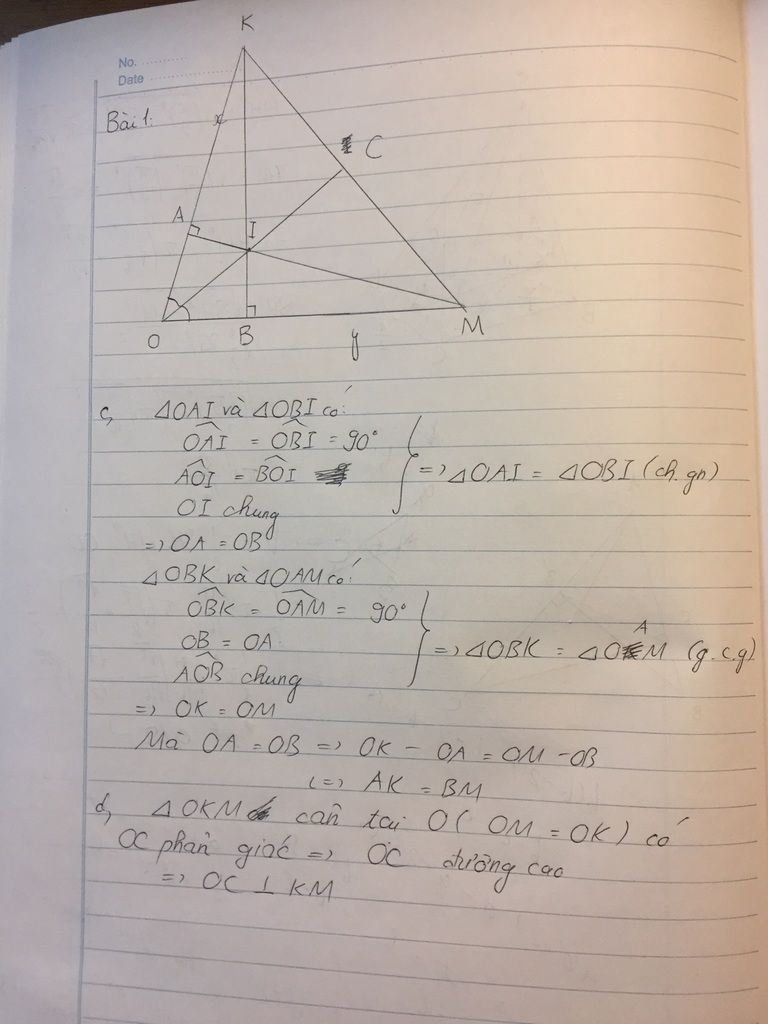 No.
Date
Bài 1:
K
x
C
A
I
O
B
y
M
c, △OAI và △OBI có:
OAI = OBI = 90°
AOI = BOI
=> △OAI = △OBI (ch.gn)
OI chung
=> OA = OB
△OBK và △OAM có:
OBK = OAM = 90°
OB = OA
=> △OBK = △OAM (g.c.g)
AOB chung
=> OK = OM
Mà OA = OB => OK - OA = OM - OB
(=> AK = BM
d, △OKM cân tại O ( OM = OK ) có
OC phân giác => OC đường cao
=> OC ⊥ KM